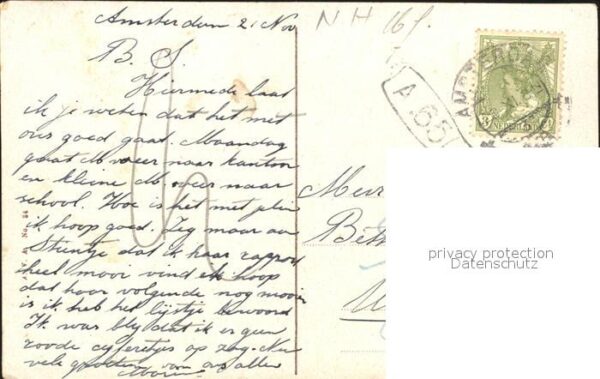 Amsterdam 21 Nov
B. S.
Hiermede laat
ik je weten dat het met
ons goed gaat. Maandag
gaat M weer naar kantoor
en kleine M. weer naar
school. Hoe is het met
ik hoop goed. Zeg maar aan
Stientje dat ik haar rapport
heel mooi vind ik hoop
dat haar volgende nog mooier
is ik heb het lijstje bewaard
Ik was blij dat ik er geen
roode cyfertjes op zag. Nu
vele groeten van ons allen
N H 16 f.
A 65
AMSTERDAM
NEDERLAND
Me
Bet
privacy protection
Datenschutz
No. 24